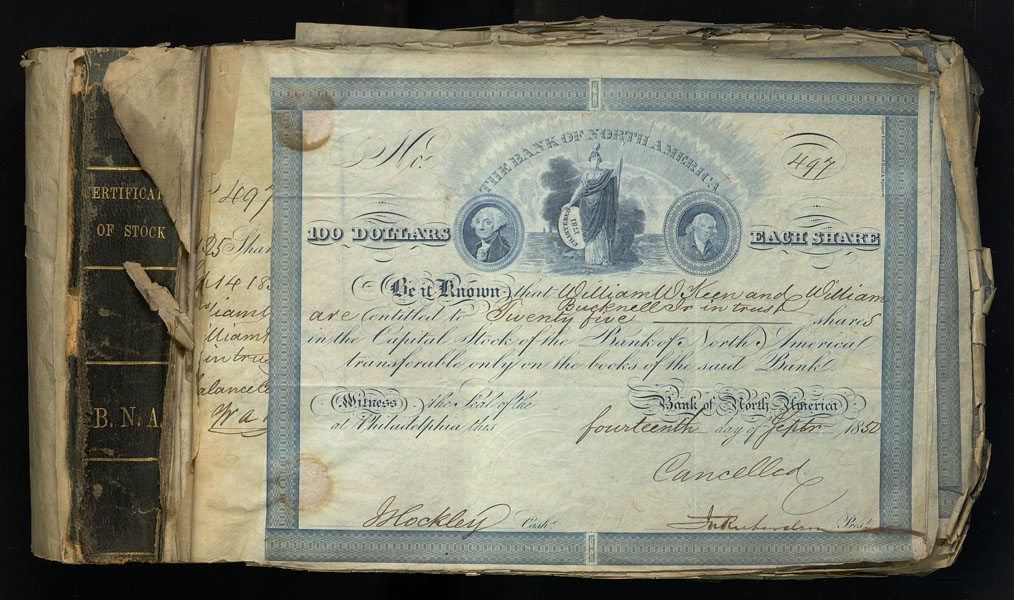 ERTIFICAT
OF STOCK
B. N. A
497
125 Shar
14 185
in trus
alance
No.
THE BANK OF NORTH AMERICA
497
100 DOLLARS
CHARTERED 1781
EACH SHARE
Be it Known that William W Keen and William
Bucknell Jr in trust
are entitled to Twenty five shares
in the Capital Stock of the Bank of North America
transferable only on the books of the said Bank
Witness the Seal of the Bank of North America
at Philadelphia this fourteenth day of Septr 1850
Cancelled
J Hockley Cashr
Jn Richardson Prest